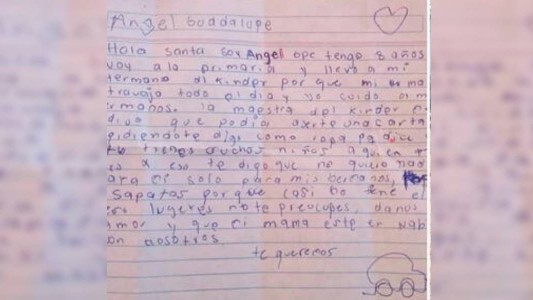 Angel Guadalupe
Hola santa soy Angel ope tengo 8 años
voy a la primaria y llevo a mi
ermano al kinder por que mi ma
travaja todo el dia y yo cuido a m
ermanos. la maestra del kinder
dijo que podia aserte una carta
pidiendote algo como ropa
tu tienes muchos niños a quien
x eso te digo que no quiero nad
ara mi solo para mis hermanos,
sapatos por que casi no tene
no te preocupes, danos
amor y que mi mama este en
on nosotros.
te queremos